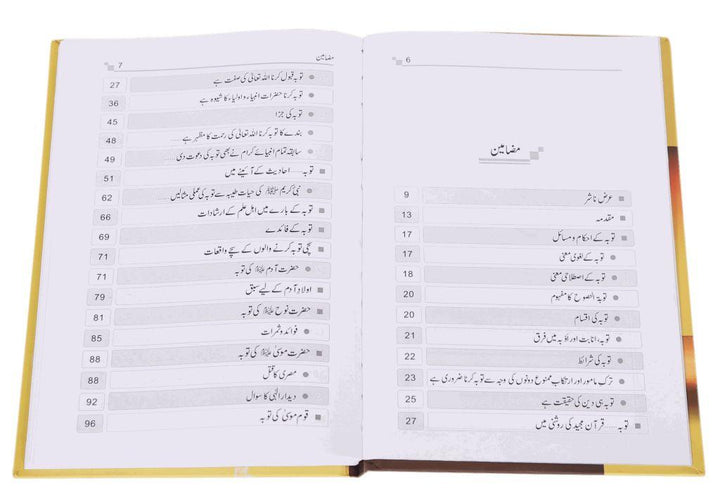 6
مضامین
عرض ناشر 9
مقدمہ 13
توبہ کے احکام و مسائل 17
توبہ کے لغوی معنی 17
توبہ کے اصطلاحی معنی 18
توبۃ النصوح کا مفہوم 20
توبہ کی اقسام 20
توبہ، انابت اور اوبہ میں فرق 21
توبہ کی شرائط 22
ترک مامور اور ارتکاب ممنوع دونوں کی وجہ سے توبہ کرنا ضروری ہے 23
توبہ ہی دین کی حقیقت ہے 25
توبہ ..... قرآن مجید کی روشنی میں 27
مضامین 7
توبہ قبول کرنا اللہ تعالیٰ کی صفت ہے 27
توبہ کرنا حضرات انبیاء و اولیاء کا شیوہ ہے 36
توبہ کی جزا 45
بندے کا توبہ کرنا اللہ تعالیٰ کی رحمت کا مظہر ہے 48
سابقہ تمام انبیائے کرام نے بھی توبہ کی دعوت دی 49
توبہ ..... احادیث کے آئینے میں 51
نبی کریم ﷺ کی حیات طیبہ سے توبہ کی عملی مثالیں 62
توبہ کے بارے میں اہل علم کے ارشادات 66
توبہ کے فائدے 69
سچی توبہ کرنے والوں کے سچے واقعات 71
حضرت آدم علیہ السلام کی توبہ 71
اولاد آدم کے لیے سبق 79
حضرت نوح علیہ السلام کی توبہ 81
فوائد و ثمرات 85
حضرت موسیٰ علیہ السلام کی توبہ 88
مصری کا قتل 88
دیدار الٰہی کا سوال 92
قوم موسیٰ کی توبہ 96